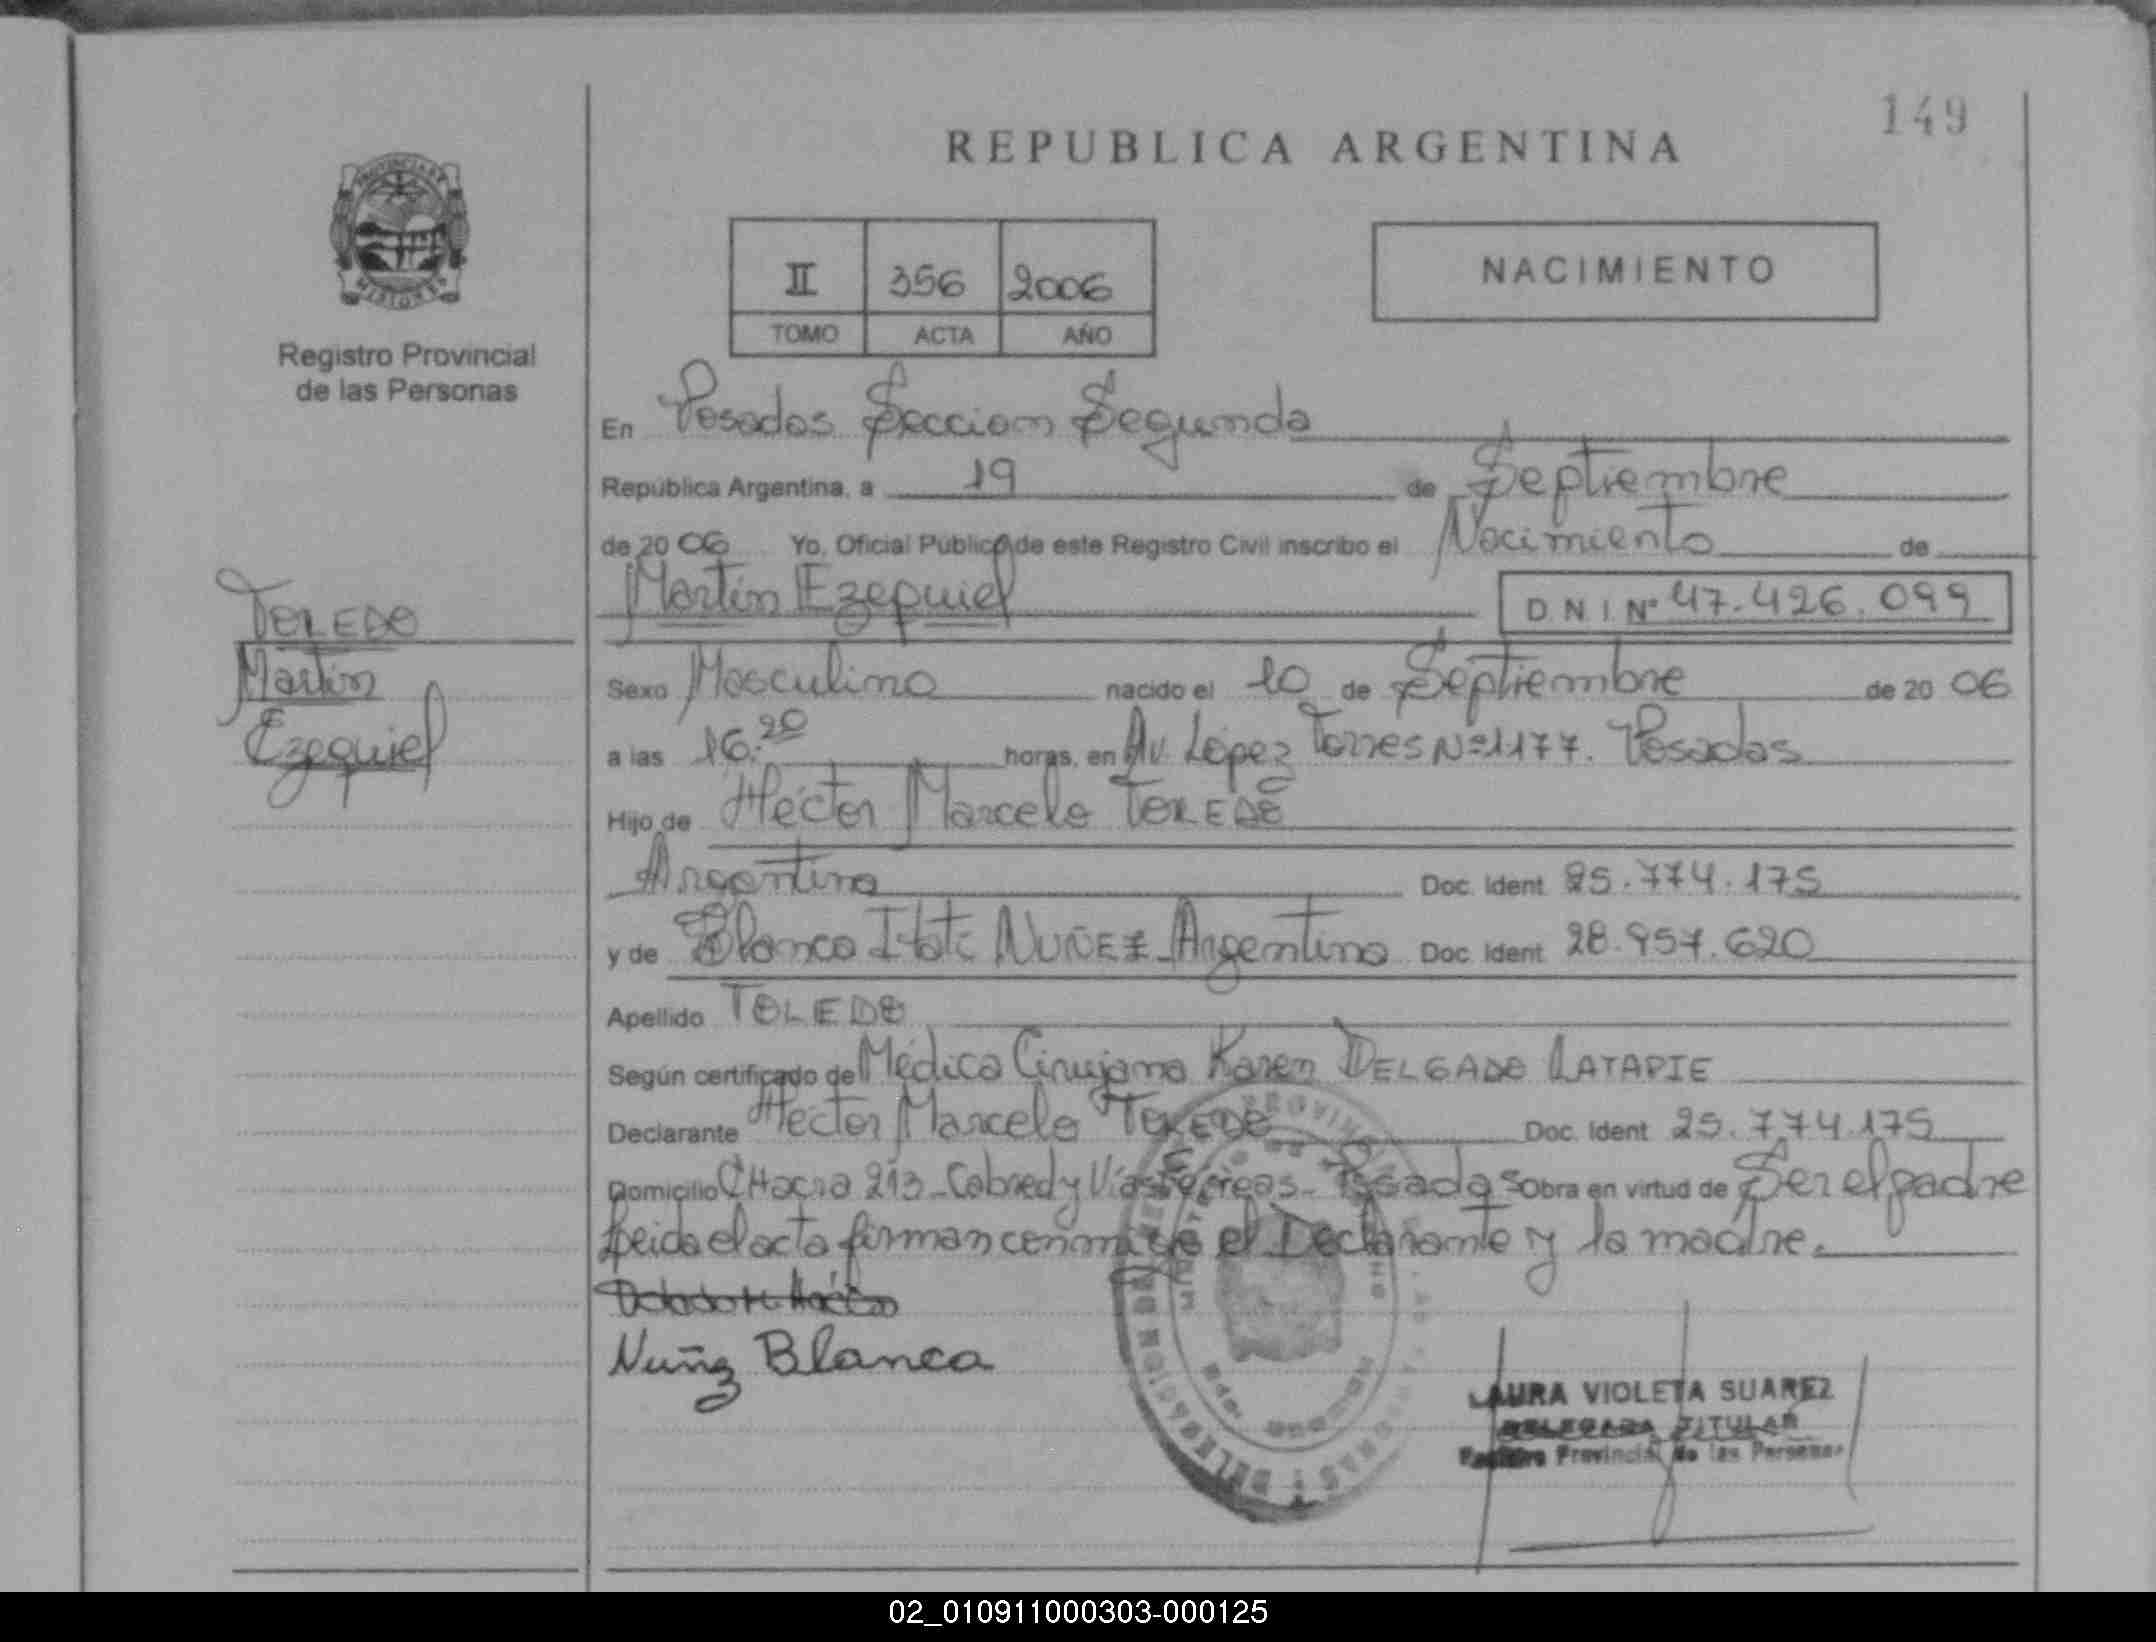 149
REPUBLICA ARGENTINA
PROVINCIA DE
MISIONES
Registro Provincial
de las Personas
II 356 2006
TOMO ACTA AÑO
NACIMIENTO
En Posadas Seccion Segunda
República Argentina, a 19 de Septiembre
de 20 06 Yo, Oficial Público de este Registro Civil inscribo el Nacimiento de
Martín Ezequiel D.N.I. Nº 47.426.099
TOLEDO
Martín
Ezequiel
Sexo Masculino nacido el 10 de Septiembre de 20 06
a las 16.20 horas, en Av. López Torres Nº 1177. Posadas
Hijo de Héctor Marcelo TOLEDO
Argentino Doc. Ident. 25.774.175
y de Blanca Itatí NUÑEZ - Argentina Doc. Ident. 28.957.620
Apellido TOLEDO
Según certificado de Médica Cirujana Karen DELGADO LATAPIE
Declarante Héctor Marcelo TOLEDO Doc. Ident. 25.774.175
Domicilio CHacra 213 - Cabred y Vías - Posadas Obra en virtud de Ser el padre
Leida el acta firman conmigo el Declarante y la madre.
Nuñz Blanca
LAURA VIOLETA SUAREZ
DELEGADA TITULAR
Registro Provincial de las Personas
02_010911000303-000125